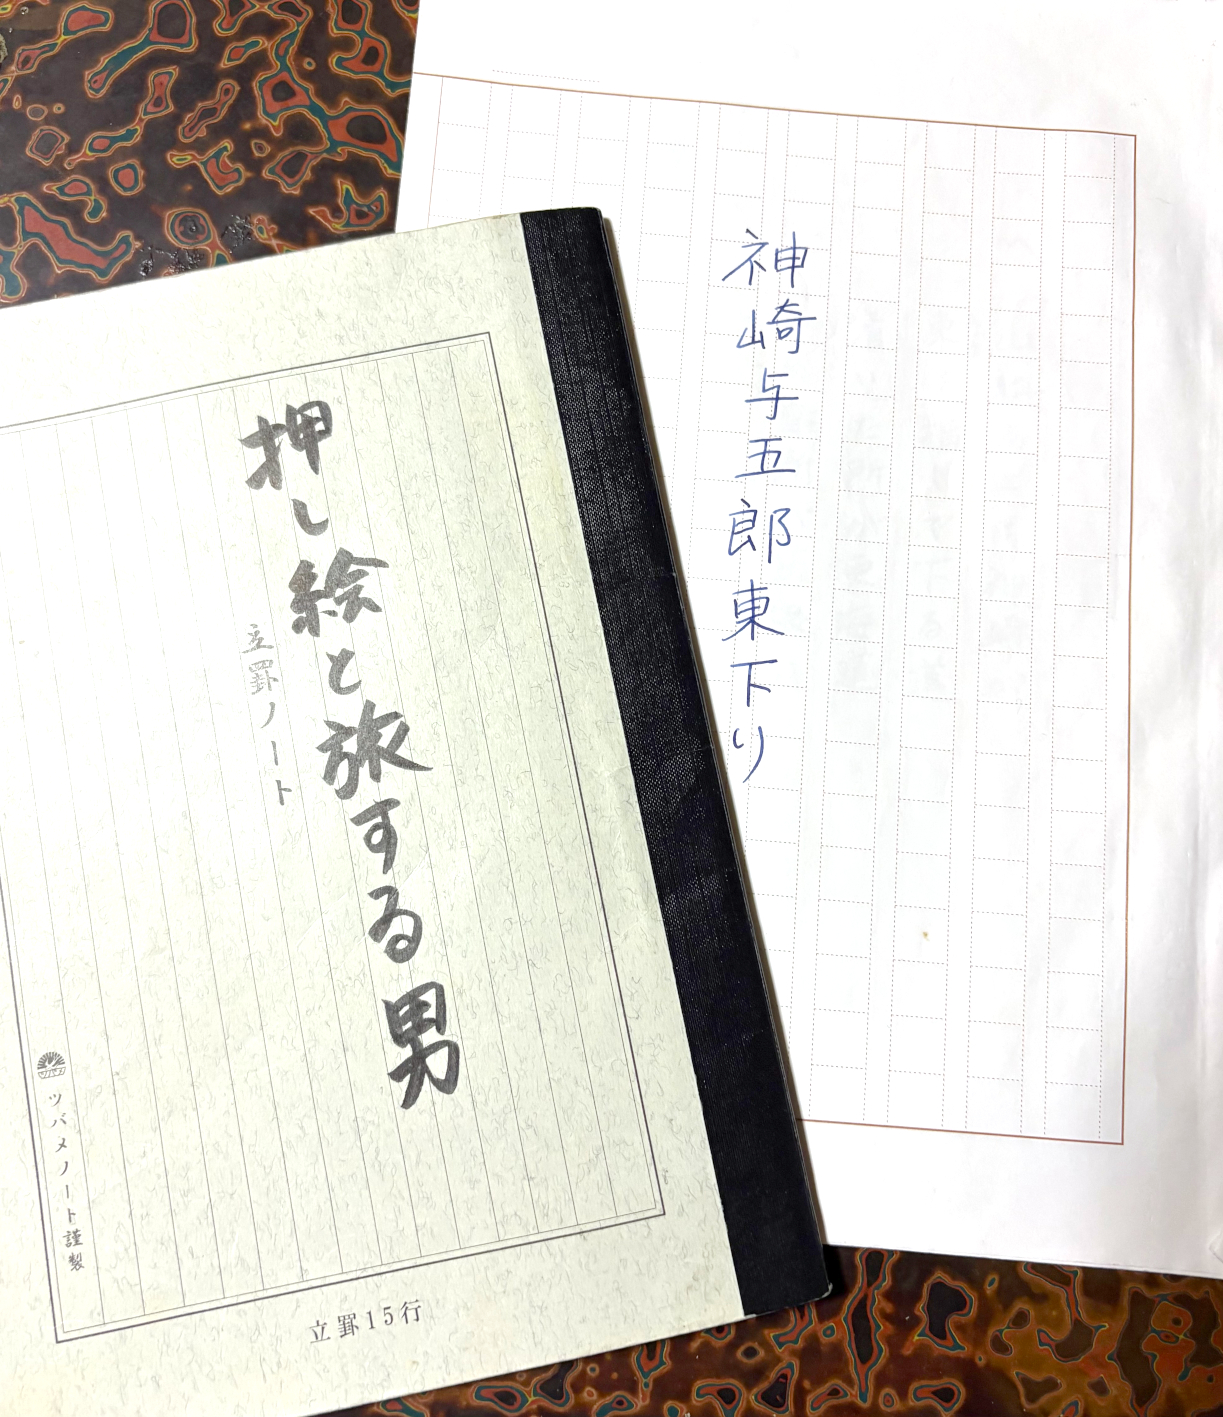 神崎与五郎東下り
押し絵と旅する男
立罫ノート
ツバメノート謹製
立罫15行